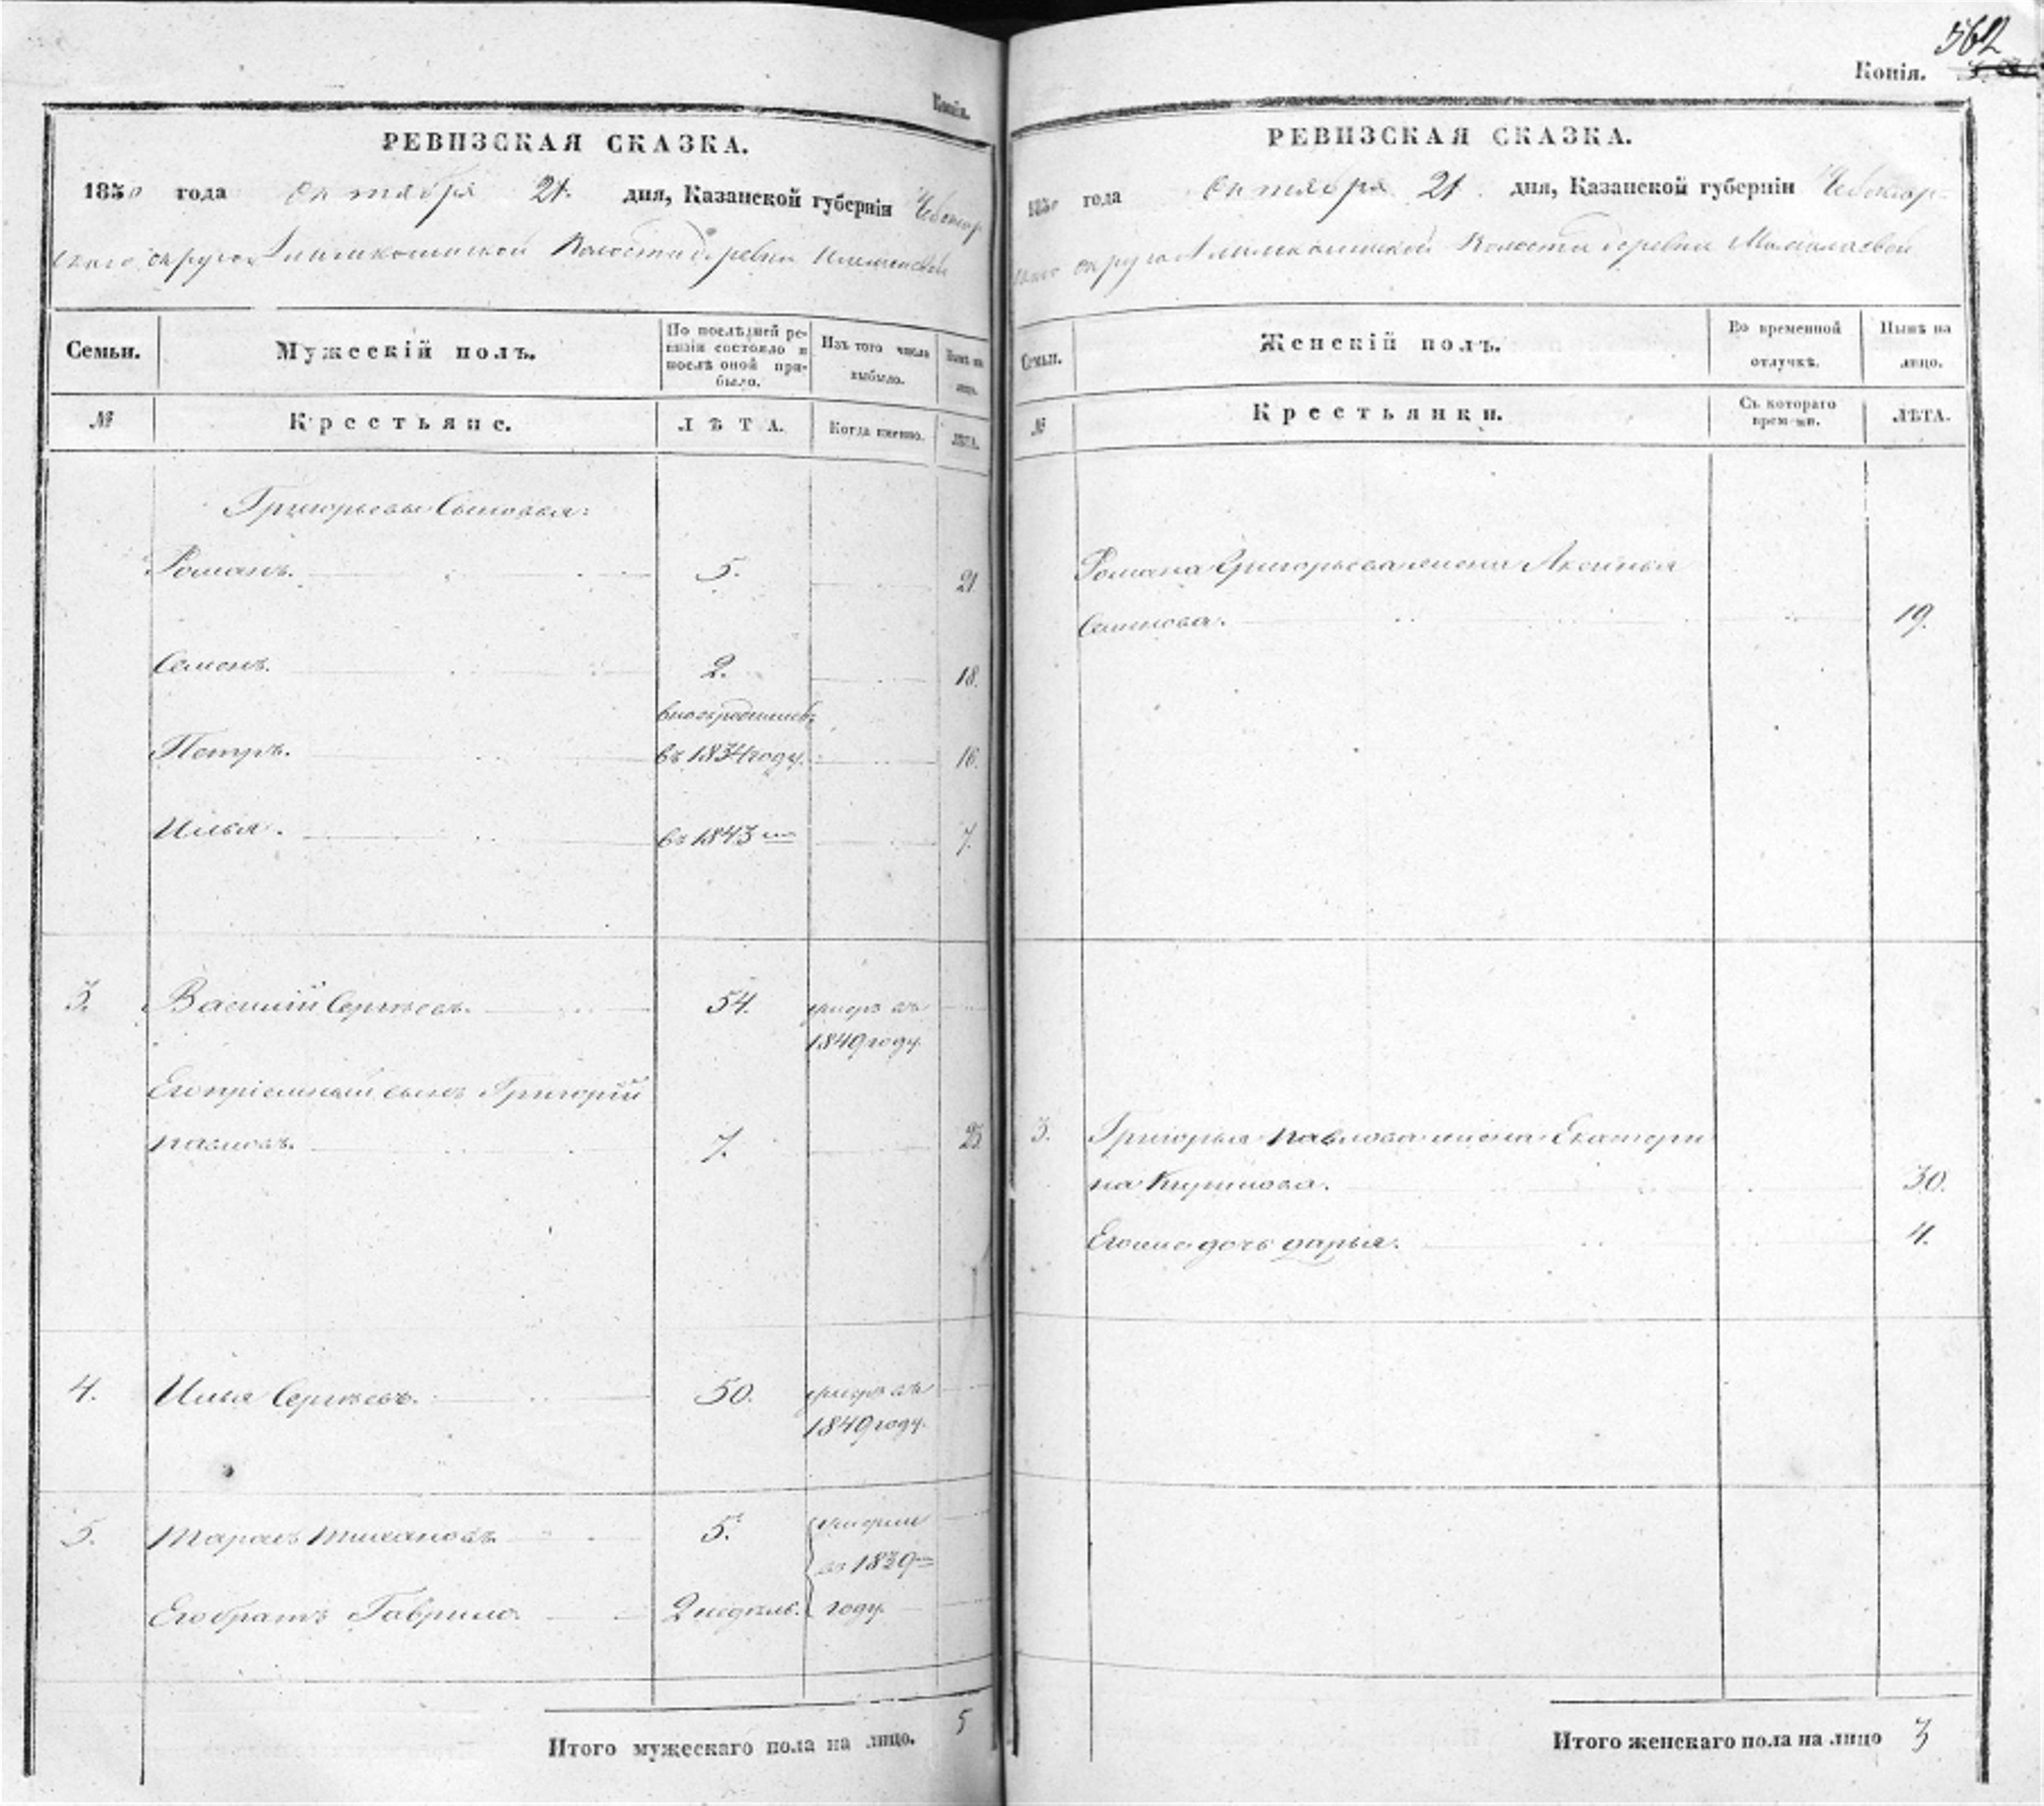 Копія.
РЕВИЗСКАЯ СКАЗКА.
1850 года октября 21. дня, Казанской губерніи Чебоксар
скаго округа волости деревни
Семьи. Мужескій полъ. По послѣдней ре-
визіи состояло и
послѣ оной при-
было. Изъ того числа
выбыло. Нынѣ на
лицо.
№ Крестьяне. ЛѢТА. Когда именно. ЛѢТА.
Григорьевы Сыновья:
Романъ. 5. 21
Семенъ. 2. 18.
вновьрожденный
Петръ. въ 1834 году. 16.
Илья. въ 1843 7.
3. Василий Сергѣевъ. 54. умеръ въ
1849 году.
Его пріемный сынъ Григорій
Павловъ. 7. 23
4. Илья Сергѣевъ. 50. умеръ въ
1849 году.
5. Тарасъ 5. умерли
въ 1839
Его братъ Гаврило. 2 недѣль. году.
Итого мужескаго пола на лицо. 5
562
Копія.
РЕВИЗСКАЯ СКАЗКА.
1850 года Октября 21. дня, Казанской губерніи Чебоксар-
скаго округа волости деревни
Семьи. Женскій полъ. Во временной
отлучкѣ. Нынѣ на
лицо.
№ Крестьянки. Съ котораго
времени. ЛѢТА.
Романа Григорьева жена Аксинья
Семенова. 19.
3. Григорья Павлова жена Екатери
на 30.
Его же дочь Дарья. 4.
Итого женскаго пола на лицо 3